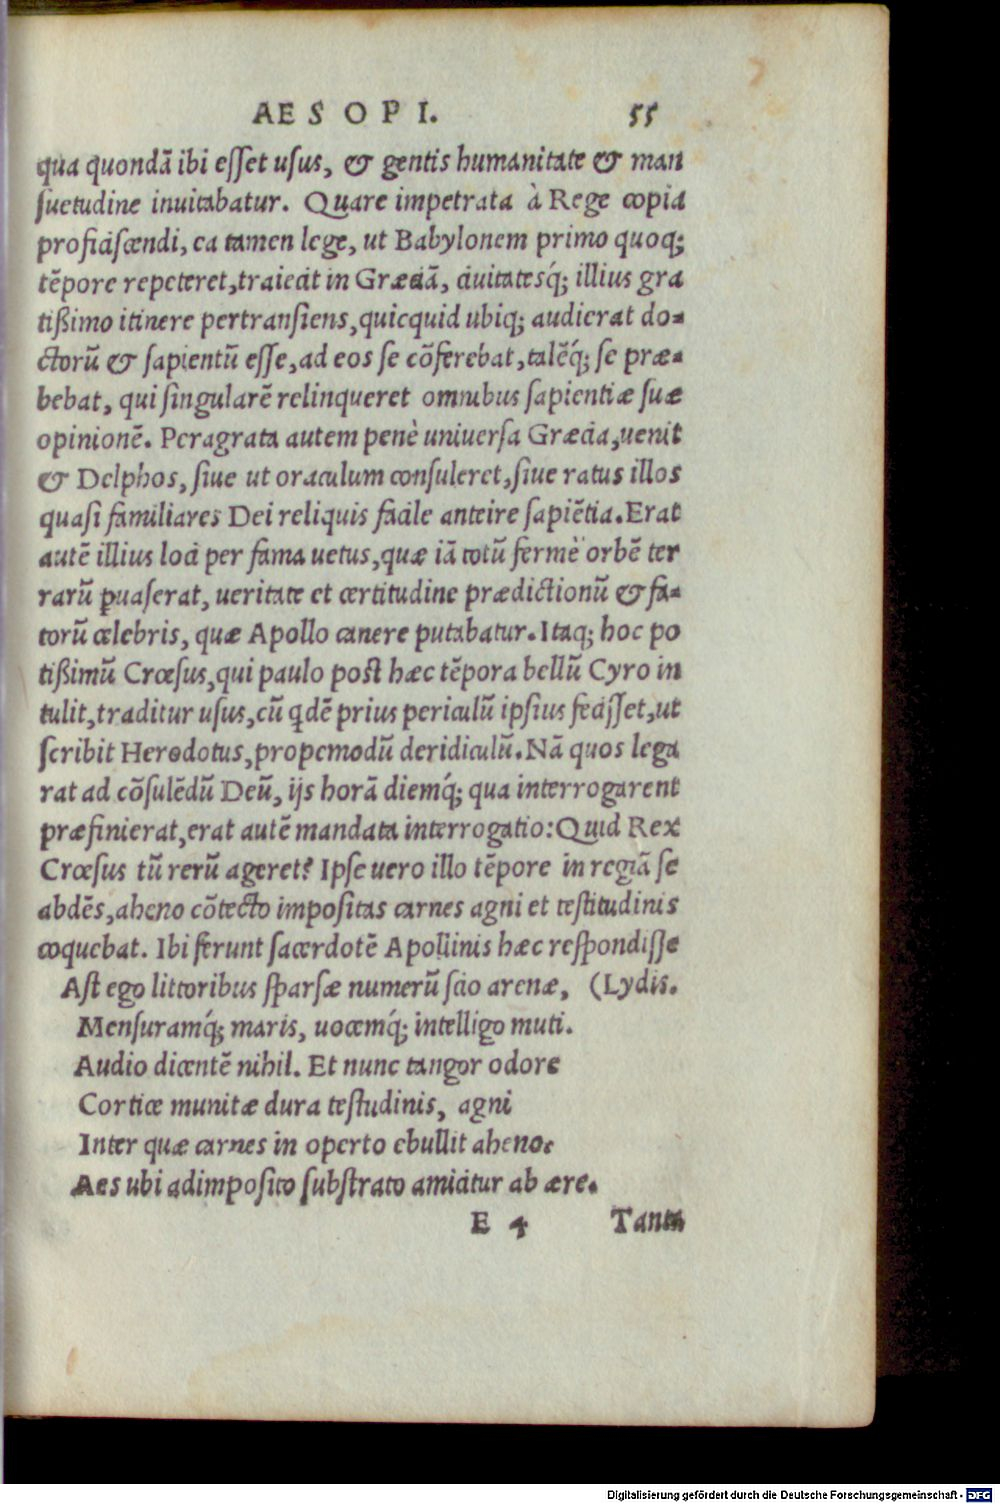 AESOPI. 55
qua quondã ibi eſſet uſus, & gentis humanitate & man
ſuetudine inuitabatur. Quare impetrata à Rege copia
proficiſcendi, ea tamen lege, ut Babylonem primo quoq;
tẽpore repeteret, traiecit in Græciã, ciuitatesq́; illius gra
tißimo itinere pertranſiens, quicquid ubiq; audierat do-
ctorũ & ſapientũ eſſe, ad eos ſe cõferebat, talẽq́; ſe præ-
bebat, qui ſingularẽ relinqueret omnibus ſapientiæ ſuæ
opinionẽ. Peragrata autem penè uniuerſa Græcia, uenit
& Delphos, ſiue ut oraculum conſuleret, ſiue ratus illos
quaſi familiares Dei reliquis facile anteire ſapiẽtia. Erat
autẽ illius loci per fama uetus, quæ iã totũ fermè orbẽ ter
rarũ ꝑuaſerat, ueritate et certitudine prædictionũ & fa-
torũ celebris, quæ Apollo canere putabatur. Itaq; hoc po
tißimũ Crœſus, qui paulo poſt hæc tẽpora bellũ Cyro in
tulit, traditur uſus, cũ qdẽ prius periculũ ipſius feciſſet, ut
ſcribit Herodotus, propemodũ deridiculũ. Nã quos lega
rat ad cõſulẽdũ Deũ, ijs horã diemq́; qua interrogarent
præfinierat, erat autẽ mandata interrogatio: Quid Rex
Crœſus tũ rerũ ageret? Ipſe uero illo tẽpore in regiã ſe
abdẽs, aheno cõtecto impoſitas carnes agni et teſtitudinis
coquebat. Ibi ferunt ſacerdotẽ Apollinis hæc reſpondiſſe
Aſt ego littoribus ſparſæ numerũ ſcio arenæ, (Lydis.
Menſuramq́; maris, uocemq́; intelligo muti.
Audio dicentẽ nihil. Et nunc tangor odore
Cortice munitæ dura teſtudinis, agni
Inter quæ carnes in operto ebullit aheno.
Aes ubi adimpoſito ſubſtrato amicitur ab ære.
E 4 Tanta
Digitalisierung gefördert durch die Deutsche Forschungsgemeinschaft - DFG